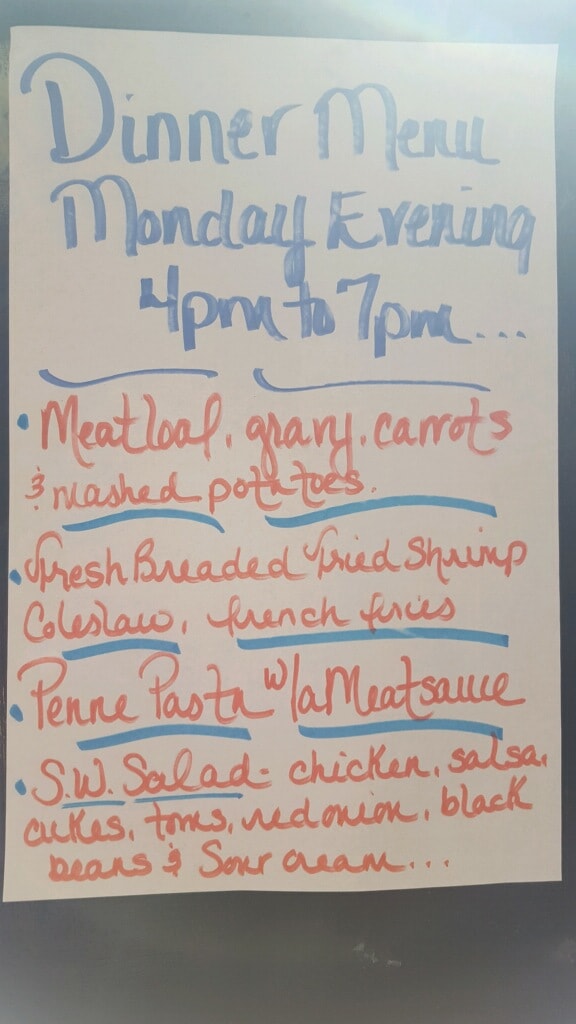 Dinner Menu
Monday Evening
4pm to 7pm...
• Meatloaf, gravy, carrots
& mashed potatoes.
• Fresh Breaded Fried Shrimp
Coleslaw, french fries
• Penne Pasta w/a Meatsauce
• S.W. Salad - chicken, salsa,
cukes, toms, red onion, black
beans & Sour cream...